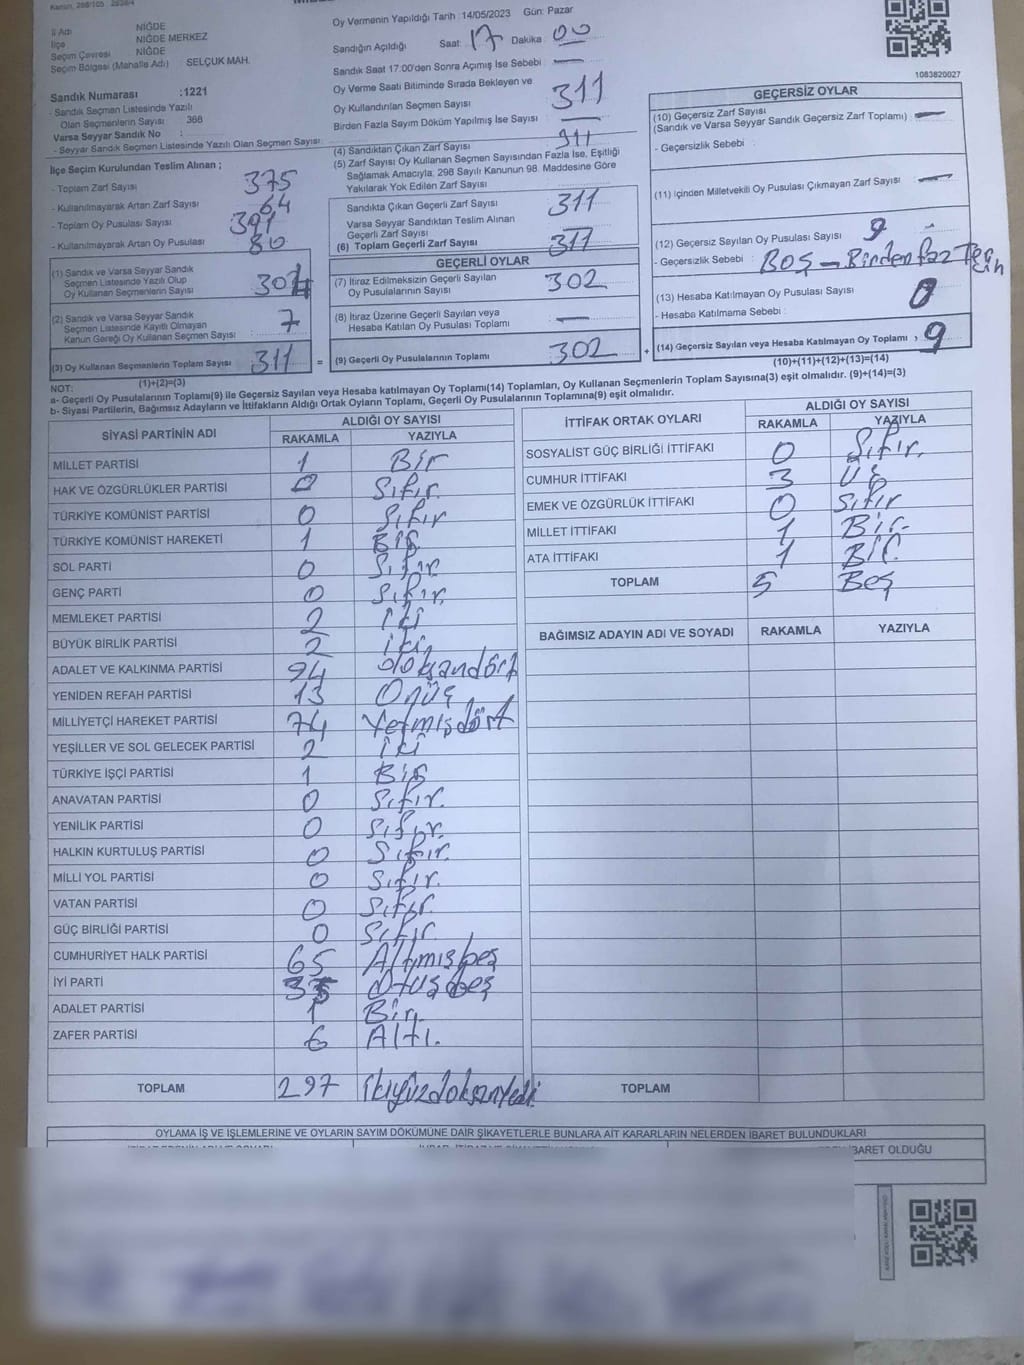 Oy Vermenin Yapıldığı Tarih : 14/05/2023 Gün: Pazar
İl Adı NİĞDE
İlçe NİĞDE MERKEZ
Seçim Çevresi NİĞDE
Seçim Bölgesi (Mahalle Adı) SELÇUK MAH.
Sandık Numarası :1221
- Sandık Seçmen Listesinde Yazılı
Olan Seçmenlerin Sayısı : 368
Varsa Seyyar Sandık No :
- Seyyar Sandık Seçmen Listesinde Yazılı Olan Seçmen Sayısı:
İlçe Seçim Kurulundan Teslim Alınan ;
- Toplam Zarf Sayısı 375
- Kullanılmayarak Artan Zarf Sayısı 64
- Toplam Oy Pusulası Sayısı 391
- Kullanılmayarak Artan Oy Pusulası 80
(1) Sandık ve Varsa Seyyar Sandık
Seçmen Listesinde Yazılı Olup
Oy Kullanan Seçmenlerin Sayısı 304
(2) Sandık ve Varsa Seyyar Sandık
Seçmen Listesinde Kayıtlı Olmayan
Kanun Gereği Oy Kullanan Seçmen Sayısı : 7
(3) Oy Kullanan Seçmenlerin Toplam Sayısı 311 =
(1)+(2)=(3)
Sandığın Açıldığı Saat 17 Dakika 00
Sandık Saat 17:00'den Sonra Açımış İse Sebebi —
Oy Verme Saati Bitiminde Sırada Bekleyen ve
Oy Kullandırılan Seçmen Sayısı 311
Birden Fazla Sayım Döküm Yapılmış İse Sayısı —
(4) Sandıktan Çıkan Zarf Sayısı 311
(5) Zarf Sayısı Oy Kullanan Seçmen Sayısından Fazla İse, Eşitliği
Sağlamak Amacıyla, 298 Sayılı Kanunun 98. Maddesine Göre
Yakılarak Yok Edilen Zarf Sayısı
Sandıkta Çıkan Geçerli Zarf Sayısı 311
Varsa Seyyar Sandıktan Teslim Alınan
Geçerli Zarf Sayısı
(6) Toplam Geçerli Zarf Sayısı 311
GEÇERLİ OYLAR
(7) İtiraz Edilmeksizin Geçerli Sayılan
Oy Pusulalarının Sayısı 302
(8) İtiraz Üzerine Geçerli Sayılan veya
Hesaba Katılan Oy Pusulası Toplamı —
(9) Geçerli Oy Pusulalarının Toplamı 302 +
1083820027
GEÇERSİZ OYLAR
(10) Geçersiz Zarf Sayısı
(Sandık ve Varsa Seyyar Sandık Geçersiz Zarf Toplamı) : —
- Geçersizlik Sebebi :
(11) İçinden Milletvekili Oy Pusulası Çıkmayan Zarf Sayısı —
(12) Geçersiz Sayılan Oy Pusulası Sayısı 9
- Geçersizlik Sebebi : Boş - Birden faz
(13) Hesaba Katılmayan Oy Pusulası Sayısı 0
- Hesaba Katılmama Sebebi :
(14) Geçersiz Sayılan veya Hesaba Katılmayan Oy Toplamı : 9
(10)+(11)+(12)+(13)=(14)
NOT:
a- Geçerli Oy Pusulalarının Toplamı(9) ile Geçersiz Sayılan veya Hesaba katılmayan Oy Toplamı(14) Toplamları, Oy Kullanan Seçmenlerin Toplam Sayısına(3) eşit olmalıdır. (9)+(14)=(3)
b- Siyasi Partilerin, Bağımsız Adayların ve İttifakların Aldığı Ortak Oyların Toplamı, Geçerli Oy Pusulalarının Toplamına(9) eşit olmalıdır.
SİYASİ PARTİNİN ADI ALDIĞI OY SAYISI
RAKAMLA YAZIYLA
MİLLET PARTİSİ 1 Bir
HAK VE ÖZGÜRLÜKLER PARTİSİ 0 Sıfır.
TÜRKİYE KOMÜNİST PARTİSİ 0 Sıfır
TÜRKİYE KOMÜNİST HAREKETİ 1 Bir
SOL PARTİ 0 Sıfır
GENÇ PARTİ 0 Sıfır.
MEMLEKET PARTİSİ 2 İki
BÜYÜK BİRLİK PARTİSİ 2 İki
ADALET VE KALKINMA PARTİSİ 94 doksandört
YENİDEN REFAH PARTİSİ 13 Onüç
MİLLİYETÇİ HAREKET PARTİSİ 74 Yetmişdört
YEŞİLLER VE SOL GELECEK PARTİSİ 2 İki
TÜRKİYE İŞÇİ PARTİSİ 1 Bir
ANAVATAN PARTİSİ 0 Sıfır.
YENİLİK PARTİSİ 0 Sıfır.
HALKIN KURTULUŞ PARTİSİ 0 Sıfır.
MİLLİ YOL PARTİSİ 0 Sıfır.
VATAN PARTİSİ 0 Sıfır.
GÜÇ BİRLİĞİ PARTİSİ 0 Sıfır
CUMHURİYET HALK PARTİSİ 65 Altmışbeş
İYİ PARTİ 35 Otuşbeş
ADALET PARTİSİ 1 Bir.
ZAFER PARTİSİ 6 Altı.
TOPLAM 297 İkiyüzdoksanyedi
İTTİFAK ORTAK OYLARI ALDIĞI OY SAYISI
RAKAMLA YAZIYLA
SOSYALİST GÜÇ BİRLİĞİ İTTİFAKI 0 Sıfır.
CUMHUR İTTİFAKI 3 Üç
EMEK VE ÖZGÜRLÜK İTTİFAKI 0 Sıfır
MİLLET İTTİFAKI 1 Bir.
ATA İTTİFAKI 1 Bir.
TOPLAM 5 Beş
BAĞIMSIZ ADAYIN ADI VE SOYADI RAKAMLA YAZIYLA
TOPLAM
OYLAMA İŞ VE İŞLEMLERİNE VE OYLARIN SAYIM DÖKÜMÜNE DAİR ŞİKAYETLERLE BUNLARA AİT KARARLARIN NELERDEN İBARET BULUNDUKLARI
BARET OLDUĞU